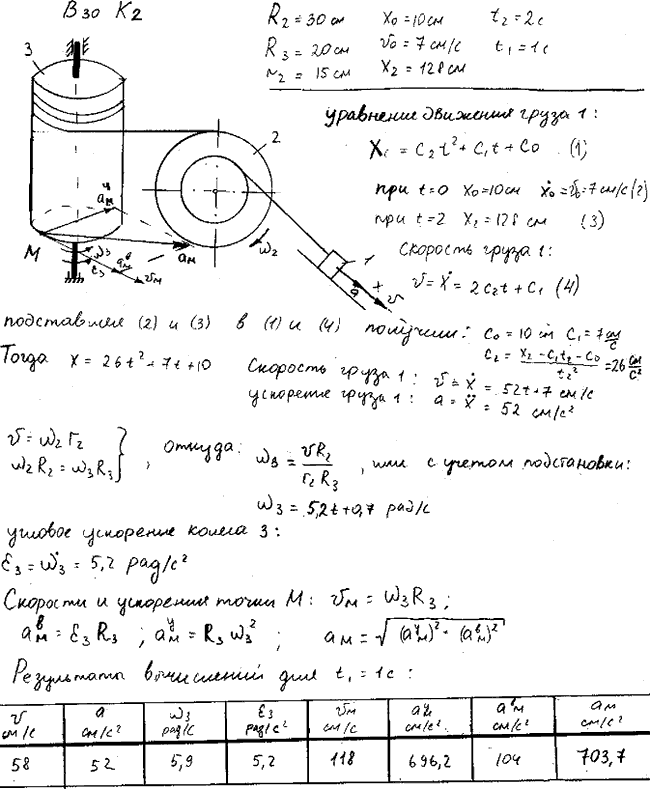 В 30 К2
R₂ = 30 см x₀ = 10 см t₂ = 2 с
R₃ = 20 см v₀ = 7 см/с t₁ = 1 с
r₂ = 15 см x₂ = 128 см
3
2
уравнение движения груза 1:
X = C₂t² + C₁t + C₀ (1)
при t=0 x₀=10см ẋ₀=v₀=7 см/с (2)
при t=2 x₂=128 см (3)
Скорость груза 1:
v = ẋ = 2C₂t + C₁ (4)
aᵤᴹ
M
ω₃
ε₃
aᵇᴹ
v_M
a_M
ω₂
1
a
+
v
подставляя (2) и (3) в (1) и (4) получим: C₀ = 10 см C₁ = 7 см/с
C₂ = (x₂ - C₁t₂ - C₀)/t₂² = 26 см/с²
Тогда x = 26t² + 7t + 10 Скорость груза 1: v = ẋ = 52t + 7 см/с
ускорение груза 1: a = ẍ = 52 см/с²
v = ω₂ r₂
ω₂R₂ = ω₃R₃ } , откуда: ω₃ = vR₂/(r₂R₃) , или с учетом подстановки:
ω₃ = 5,2t + 0,7 рад/с
угловое ускорение колеса 3:
ε₃ = ω̇₃ = 5,2 рад/с²
Скорости и ускорения точки М: v_M = ω₃R₃;
aᵇ_M = ε₃R₃ ; aʸ_M = R₃ω₃² ; a_M = √((aʸ_M)² + (aᵇ_M)²)
Результаты вычислений для t₁ = 1 с:
v см/с a см/с² ω₃ рад/с ε₃ рад/с² v_M см/с aʸ_M см/с² aᵇ_M см/с² a_M см/с²
58 52 5,9 5,2 118 696,2 104 703,7